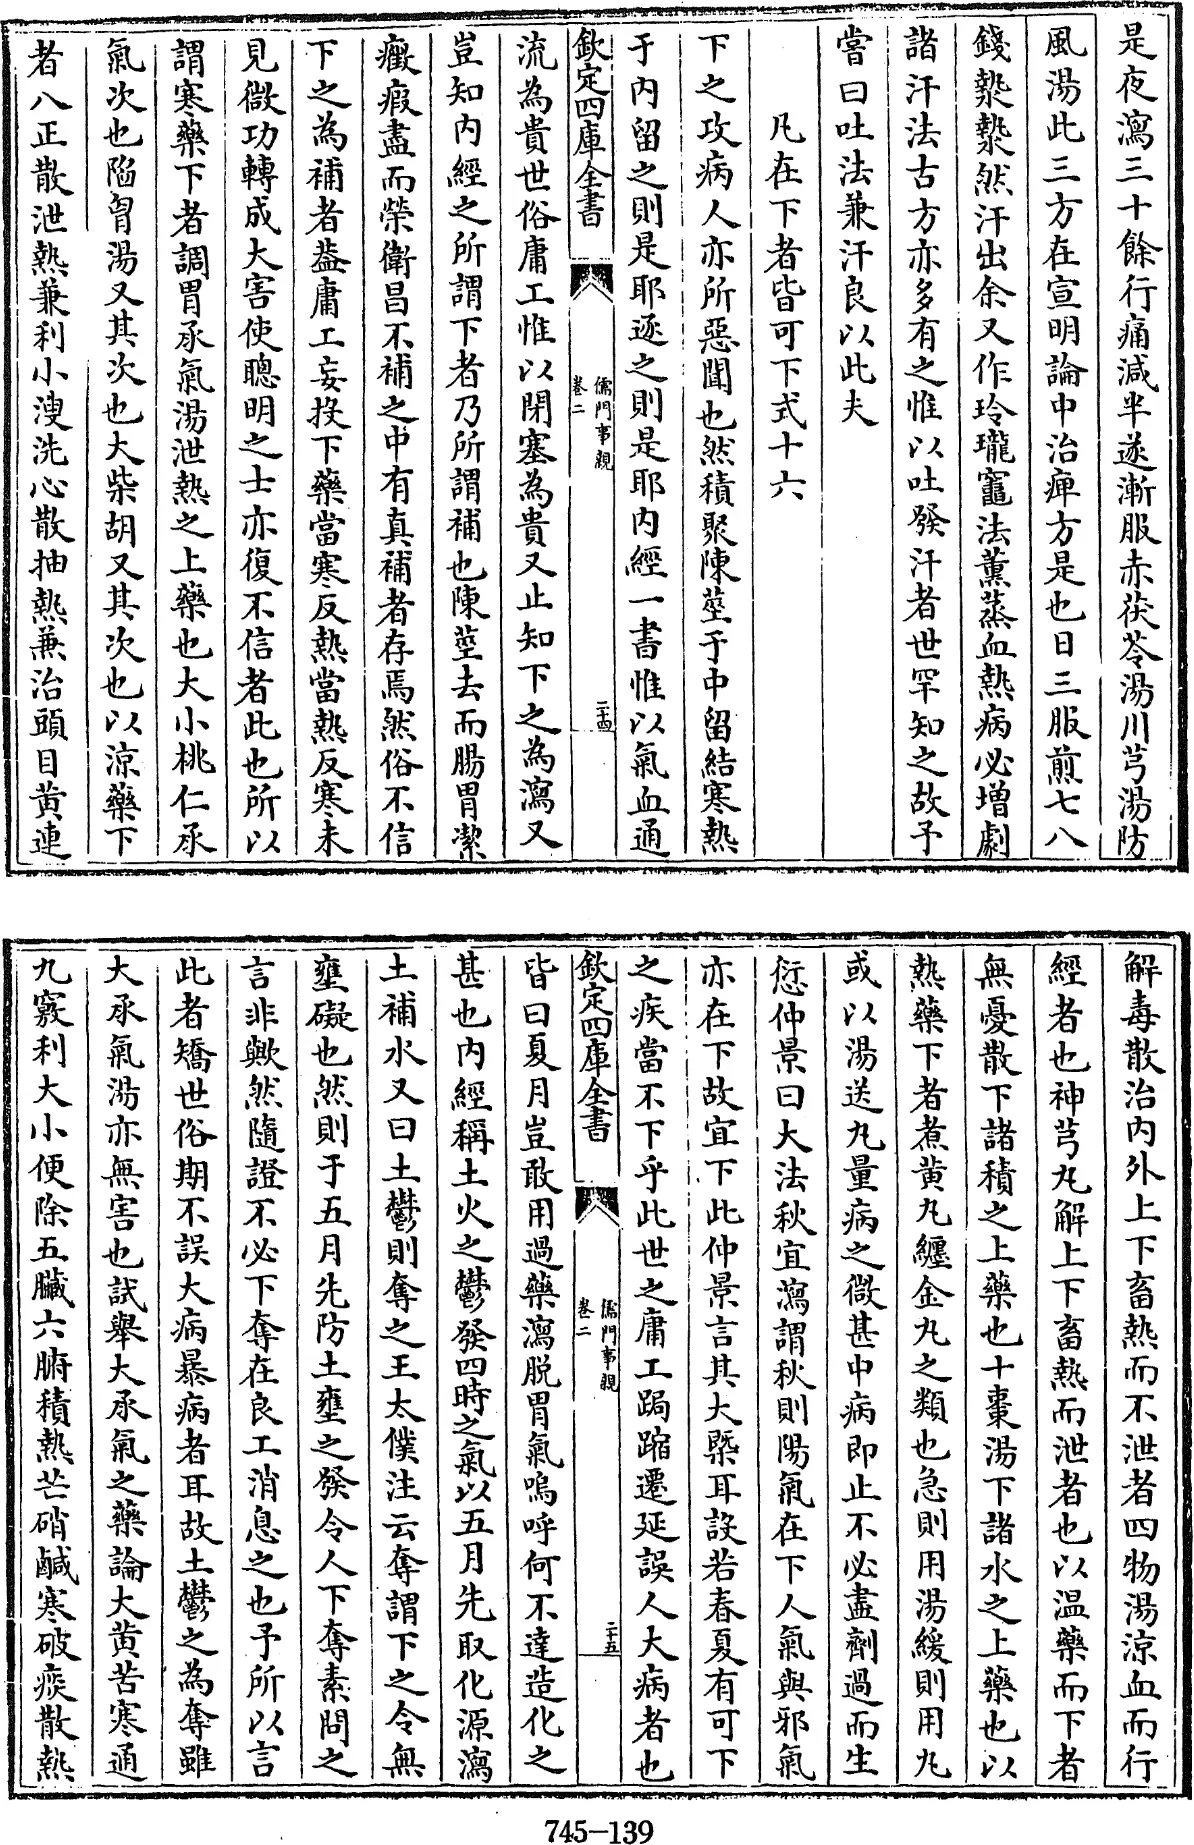 是夜瀉三十餘行痛減半遂漸服赤茯苓湯川芎湯防
風湯此三方在宣明論中治痺方是也日三服煎七八
錢漐漐然汗出余又作玲瓏竈法薰蒸血熱病必增劇
諸汗法古方亦多有之惟以吐發汗者世罕知之故予
嘗曰吐法兼汗良以此夫
凡在下者皆可下式十六
下之攻病人亦所惡聞也然積聚陳莝于中留結寒熱
于内留之則是耶逐之則是耶内經一書惟以氣血通
欽定四庫全書
儒門事親
卷二
二十四
流為貴世俗庸工惟以閉塞為貴又止知下之為瀉又
豈知内經之所謂下者乃所謂補也陳莝去而腸胃潔
癥瘕盡而榮衛昌不補之中有真補者存焉然俗不信
下之為補者葢庸工妄投下藥當寒反熱當熱反寒未
見微功轉成大害使聰明之士亦復不信者此也所以
謂寒藥下者調胃承氣湯泄熱之上藥也大小桃仁承
氣次也陷胷湯又其次也大柴胡又其次也以涼藥下
者八正散泄熱兼利小溲洗心散抽熱兼治頭目黄連
解毒散治内外上下畜熱而不泄者四物湯涼血而行
經者也神芎丸解上下畜熱而泄者也以温藥而下者
無憂散下諸積之上藥也十棗湯下諸水之上藥也以
熱藥下者煮黄丸纒金丸之類也急則用湯緩則用丸
或以湯送丸量病之微甚中病即止不必盡劑過而生
愆仲景曰大法秋宜瀉謂秋則陽氣在下人氣與邪氣
亦在下故宜下此仲景言其大槩耳設若春夏有可下
之疾當不下乎此世之庸工跼蹜遷延誤人大病者也
欽定四庫全書
儒門事親
卷二
二十五
皆曰夏月豈敢用過藥瀉脱胃氣嗚呼何不達造化之
甚也内經稱土火之鬱發四時之氣以五月先取化源瀉
土補水又曰土鬱則奪之王太僕注云奪謂下之令無
壅礙也然則于五月先防土壅之發令人下奪素問之
言非歟然隨證不必下奪在良工消息之也予所以言
此者矯世俗期不誤大病暴病者耳故土鬱之為奪雖
大承氣湯亦無害也試舉大承氣之藥論大黄苦寒通
九竅利大小便除五臟六腑積熱芒硝鹹寒破痰散熱
745-139